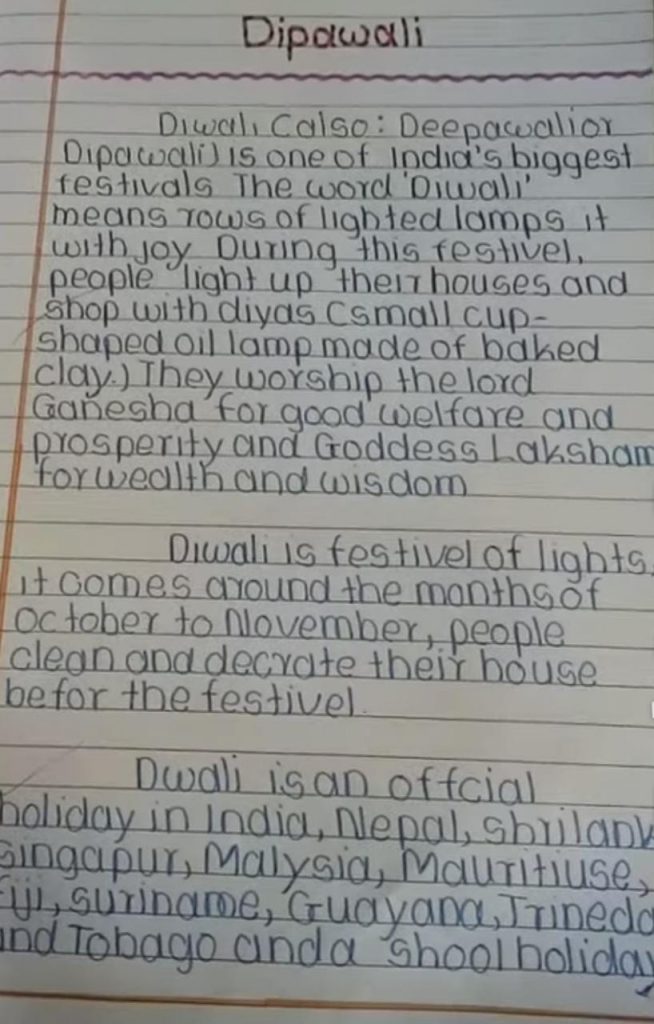 Dipawali
Diwali (also: Deepawali or
Dipawali) is one of India's biggest
festivals The word 'Diwali'
means rows of lighted lamps it
with joy During this festivel,
people light up their houses and
shop with diyas (small cup-
shaped oil lamp made of baked
clay.) They worship the lord
Ganesha for good welfare and
prosperity and Goddess Laksham
for wealth and wisdom
Diwali is festivel of lights
it comes around the months of
october to November, people
clean and decrate their house
befor the festivel.
Dwali is an offcial
holiday in India, Nepal, shrilank
singapur, Malysia, Mauritiuse,
Fiji, suriname, Guayana, Trinedd
and Tobago and a shool holiday